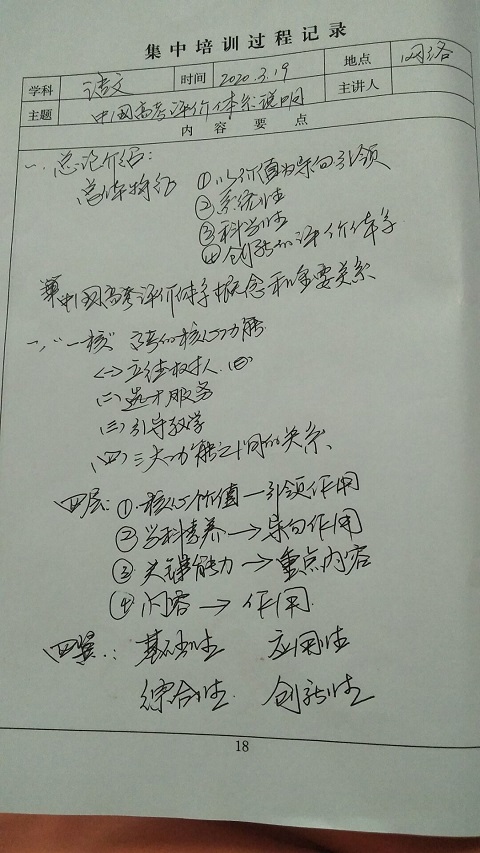 集中培训过程记录
学科 语文 时间 2020.3.19 地点 网络
主题 中国高考评价体系说明 主讲人
内容要点
一、总论介绍:
总体特征 ①以价值为导向引领
②系统性
③科学性
④创新的评价体系
中国高考评价体系概念和主要关系
一、"一核" 高考的核心功能
<一>立德树人
(二)选才服务
(三)引导教学
(四)三大功能之间的关系
四层:①核心价值—引领作用
②学科素养→导向作用
③关键能力→重点内容
④内容→作用
四翼:基础性 应用性
综合性 创新性
18